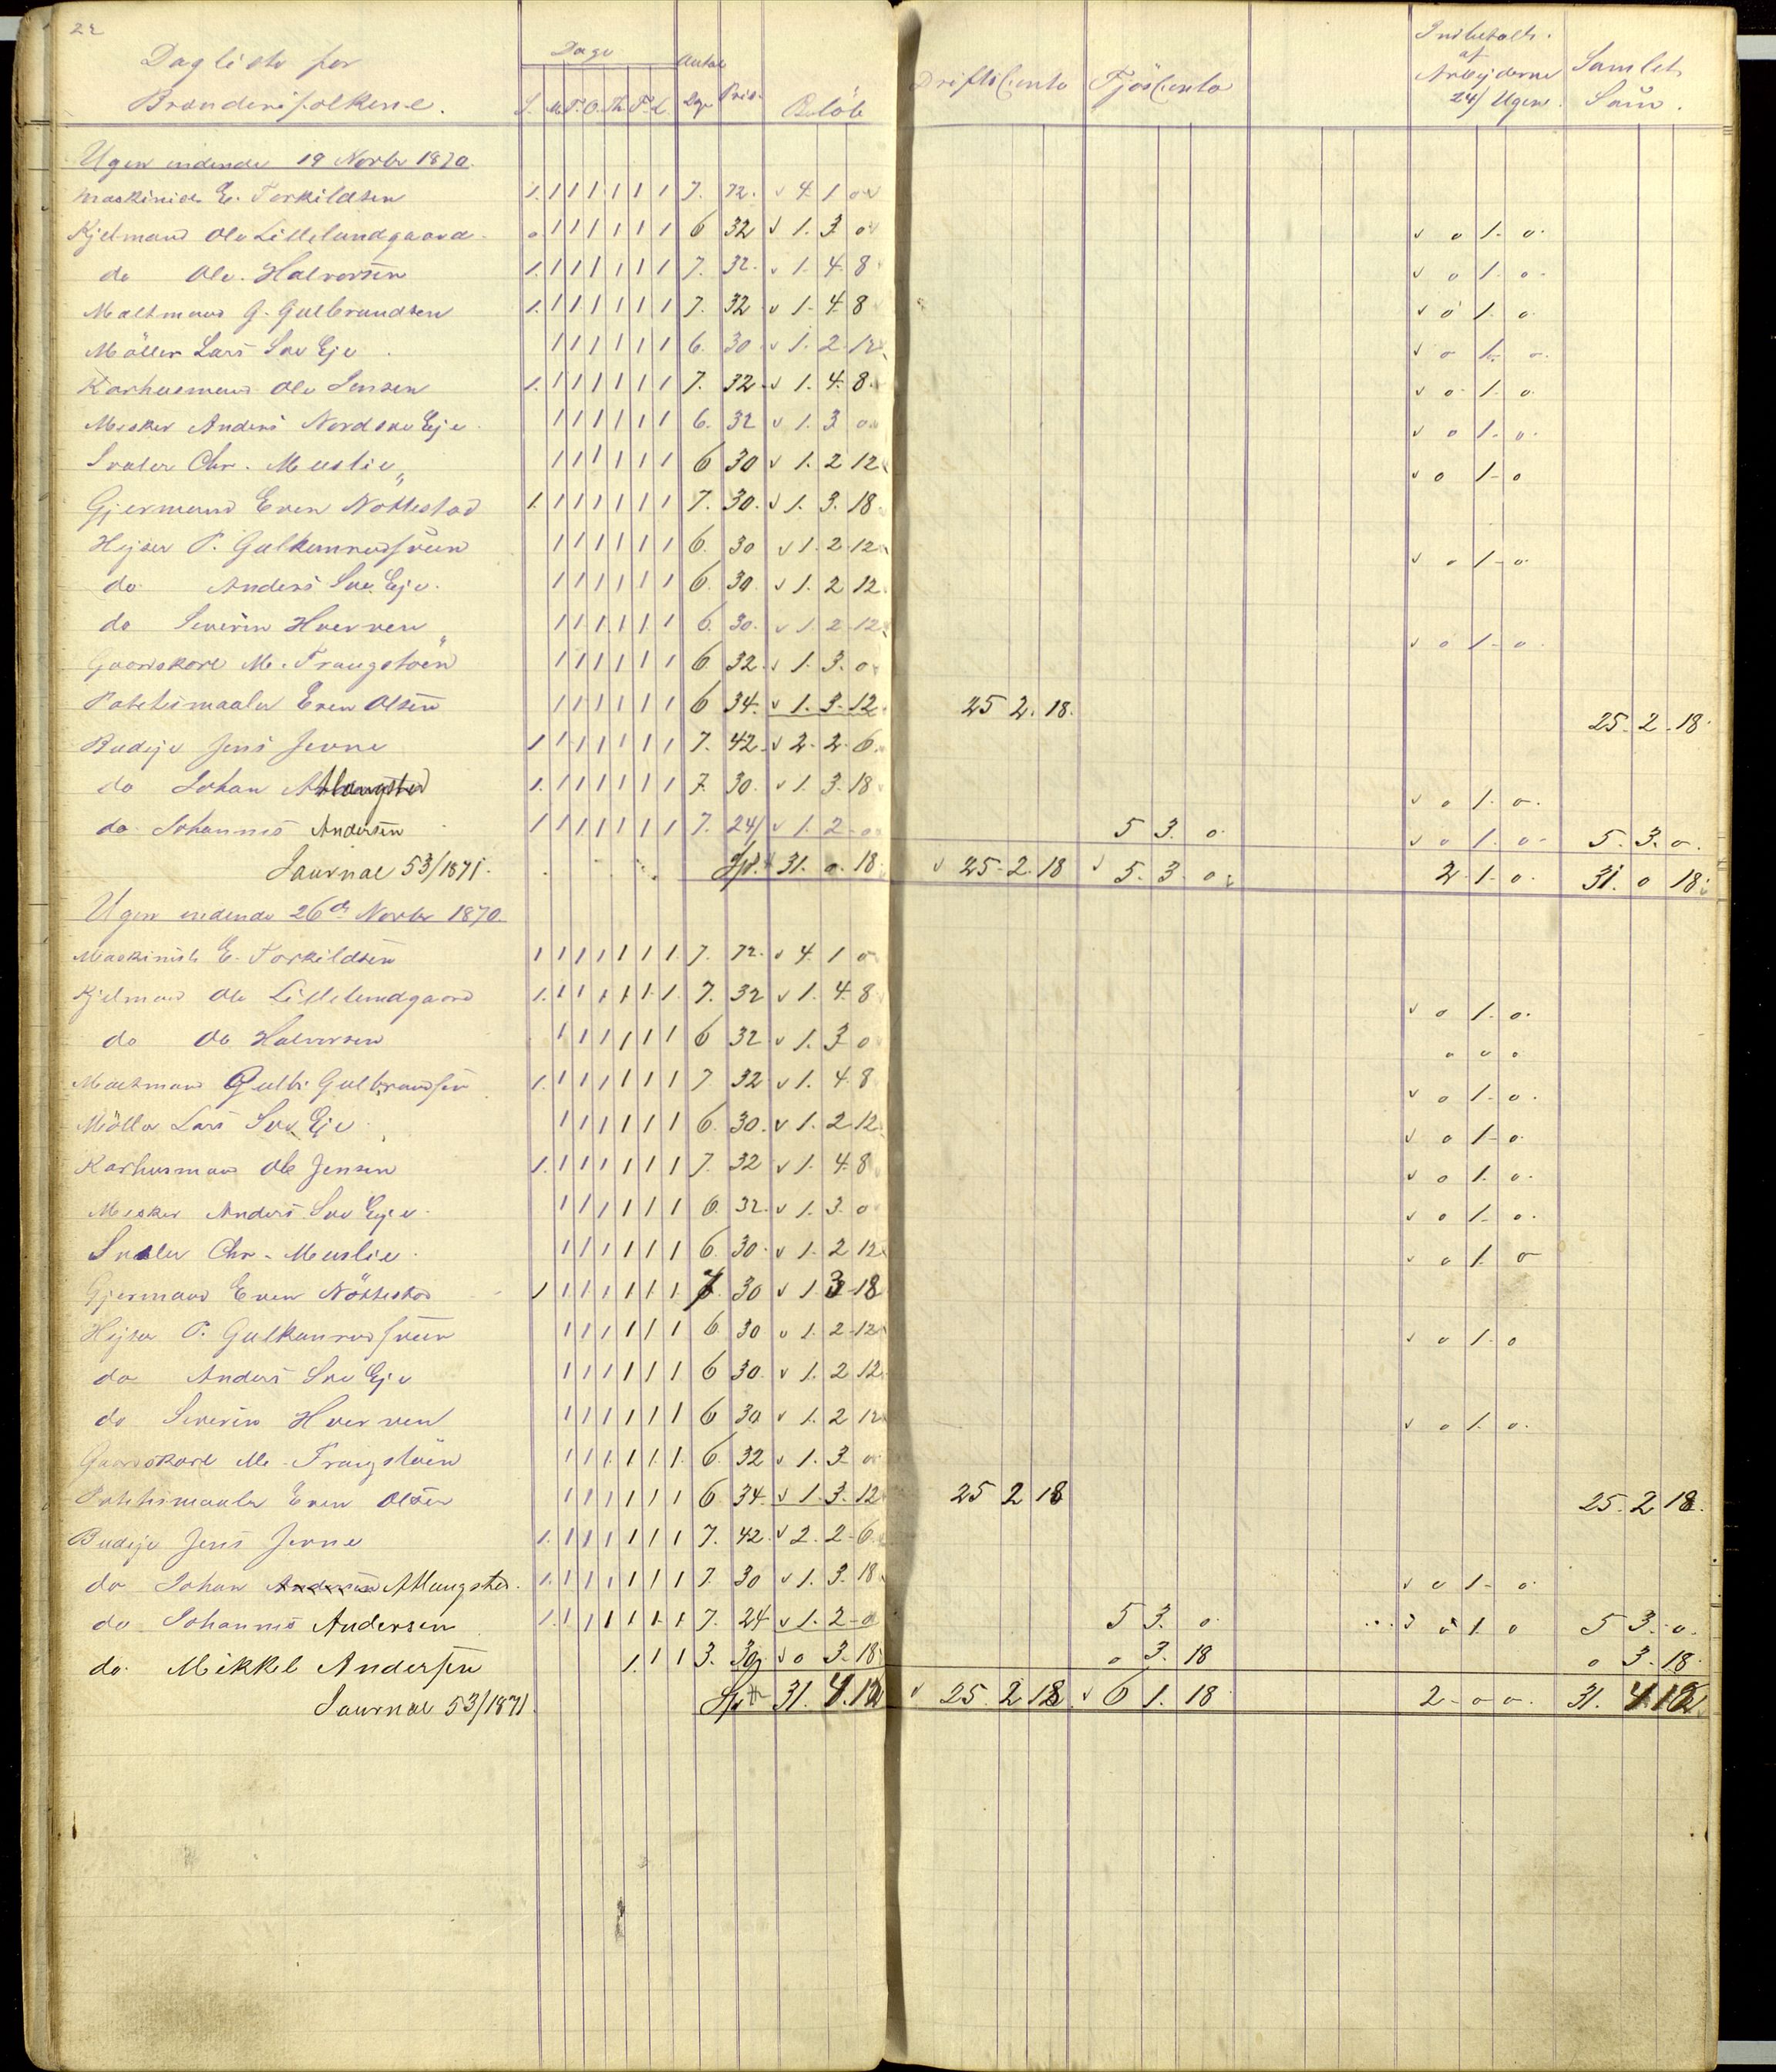 22
Dagliste for
Brænderifolkene.
Dage
S. M. T. O. Th. F. L.
Antal Dge Pris. Beløb
Driftsconto Fjösconto
Indbetalt af Arbejderne 24/ Ugen.
Samlet Sum.
Ugen endende 19 Novbr 1870.
Maskinist E. Torkildsen 1. 1 1 1 1 1 1 7. 72. v 4. 1 0
Kjelmand Ole Lillelundgaard 0 1 1 1 1 1 1 6 32 v 1. 3 0 v 0 1. 0.
do Ole. Halvorsen 1. 1 1 1 1 1 1 7. 32. v 1. 4. 8 v 0 1. 0.
Maltmand G. Gulbrandsen 1. 1 1 1 1 1 1 7. 32 v 1. 4. 8 v 0 1. 0.
Möller Lars Sve Eje 1 1 1 1 1 1 6. 30. v 1. 2. 12 v 0 1. 0.
Karhusmand Ole Jensen 1. 1 1 1 1 1 1 7. 32. v 1. 4. 8. v 0 1. 0.
Mesker Anders Nordsve Eje 1 1 1 1 1 1 6. 32 v 1. 3 0 v 0 1. 0.
Svaler Chr. Muslie 1 1 1 1 1 1 6 30 v 1. 2 12 v 0 1. 0
Gjermand Even Nöttestad 1. 1 1 1 1 1 1 7. 30. v 1. 3. 18.
Hejser P. Gulkannrudsveen 1 1 1 1 1 1 6. 30 v 1. 2 12 v 0 1. 0.
do Anders Sve Eje. 1 1 1 1 1 1 6. 30. v 1. 2 12
do Severin Hverven 1 1 1 1 1 1 6. 30. v 1. 2 12 v 0 1. 0.
Gaardskarl M. Traugstöen 1 1 1 1 1 1 6 32. v 1. 3. 0
Pottetismaaler Even Olsen 1 1 1 1 1 1 6 34. v 1. 3. 12. 25 2. 18. 25. 2. 18.
Budeje Jens Jevne 1 1 1 1 1 1 1 7. 42. v 2. 2. 6
do Johan Allaugsted 1. 1 1 1 1 1 1 7. 30. v 1. 3. 18 v 0 1. 0.
do. Johannes Andersen 1 1 1 1 1 1 1 7. 24 v 1. 2. 0 5 3. 0. v 0 1. 0. 5. 3. 0.
Journal 53/1871. Spd. 31. 0. 18. v 25. 2. 18 v 5. 3. 0 2. 1. 0. 31. 0 18
Ugen endende 26de Novbr 1870.
Maskinist E. Torkildsen 1 1 1 1 1 1 1. 7. 72. v 4. 1 0
Kjelmand Ole Lillelundgaard 1. 1 1 1 1 1. 1. 7. 32 v 1. 4. 8 v 0 1. 0.
do Ole Halvorsen 1 1 1 1 1 1 6 32 v 1. 3 0 0 0 0
Maltmand Gulb. Gulbrandsen 1. 1 1 1 1 1 1 7 32 v 1. 4. 8 v 0 1. 0.
Möller Lars Sve Eje 1 1 1 1 1 1 6. 30. v 1. 2 12 v 0 1. 0.
Karhusmand Ole Jensen 1. 1 1 1 1 1 1 7. 32 v 1. 4. 8 v 0 1. 0.
Mesker Anders Sve Eje 1 1 1 1 1 1 6. 32. v 1. 3. 0 v 0 1. 0.
Svaler Chr. Muslie 1 1 1 1 1 1 6. 30. v 1. 2 12 v 0 1. 0
Gjermand Even Nöttestad 1 1 1 1 1 1 1. 7. 30 v 1 3. 18
Hejser P. Gulkannrudsveen 1 1 1 1 1 1 6 30 v 1. 2. 12 v 0 1. 0
do Anders Sve Eje 1 1 1 1 1 1 6 30. v 1. 2 12
do Severin Hverven 1 1 1 1 1 1 6 30 v 1. 2 12 v 0 1. 0.
Gaardskarl M. Traugstöen 1 1 1 1. 1. 1. 6. 32 v 1. 3. 0
Pottetismaaler Even Olsen 1 1 1 1 1 1 6 34. v 1. 3. 12 25 2 18 25. 2 18.
Budeje Jens Jevne 1. 1 1 1 1 1 1 7. 42. v 2. 2. 6
do Johan Andersen Allaugsted. 1. 1 1 1 1 1 1 7. 30 v 1. 3. 18 v 0 1. 0.
do Johannes Andersen 1. 1 1 1 1. 1. 1 7. 24 v 1. 2. 0 5 3. 0. 0 1. 0 5 3. 0.
do. Mikkel Andersen 1. 1 1 3. 30 v 0 3. 18 0 3. 18 0 3. 18.
Journal 53/1871. Spd 31. 4. 12 v 25. 2 18 v 6 1. 18 2. 0 0. 31. 4. 12